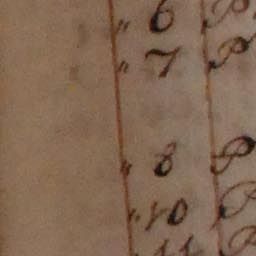 " 6 P
" 7 P
" 8 P
" 10 P
" 11 P